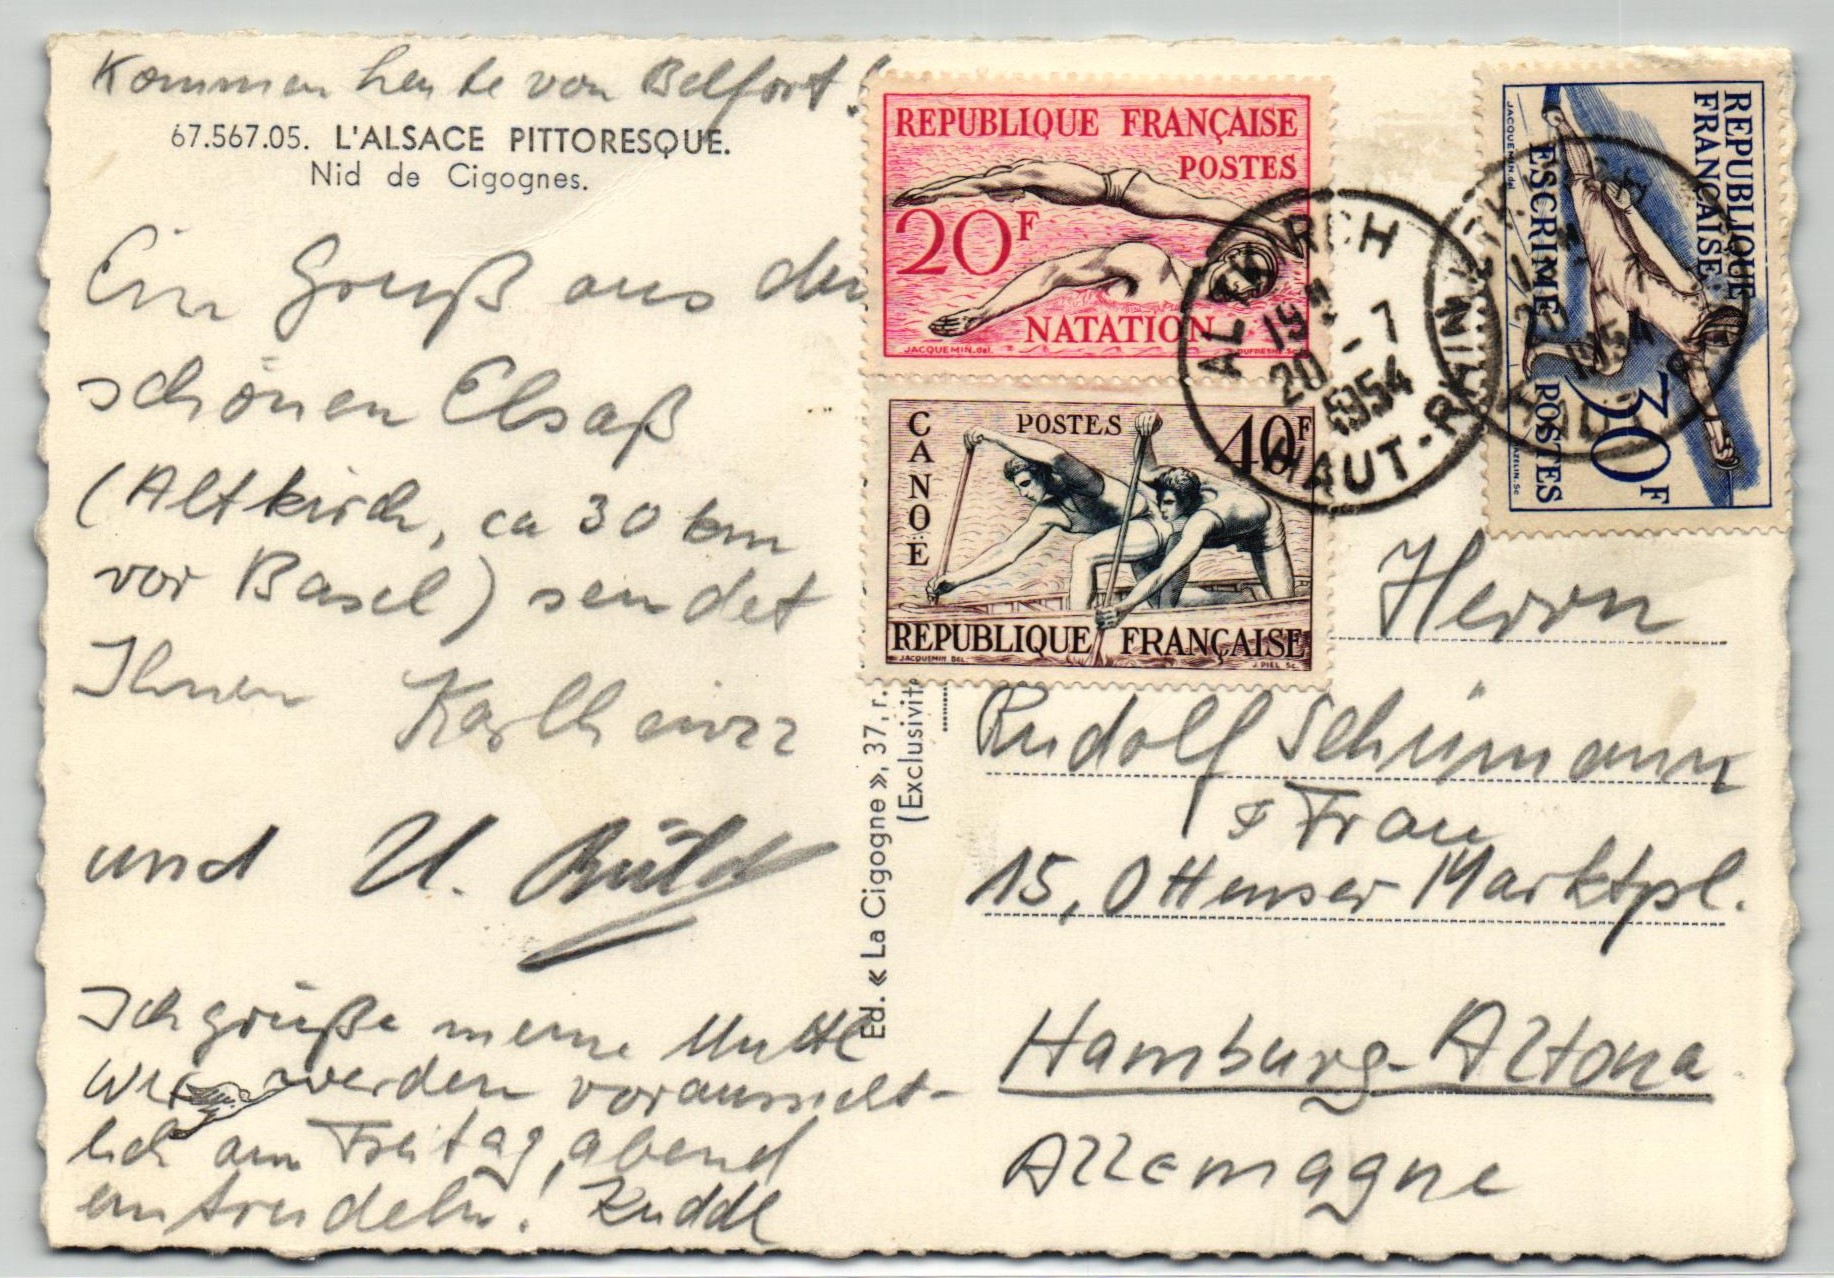 Kommen heute von Belfort!
67.567.05. L'ALSACE PITTORESQUE.
Nid de Cigognes.
Ein Gruß aus dem
schönen Elsaß
(Altkirch, ca 30 km
vor Basel) sendet
Ihnen Karlheinz
und U.
Ich grüße meine Mutti
Wir werden voraussicht-
lich am Freitag, abend
eintrudeln! Kuddl
Ed. « La Cigogne », 37, r.
(Exclusivité
REPUBLIQUE FRANÇAISE
POSTES
20F
NATATION
JACQUEMIN.del.
DUFRESNE.Sc
CANOË
POSTES
40F
REPUBLIQUE FRANÇAISE
JACQUEMIN DEL.
J. PIEL SC.
ALTKIRCH
19H
20-7
1954
HAUT-RHIN
REPUBLIQUE
FRANÇAISE
ESCRIME POSTES
30F
JACQUEMIN.del
1954
Herrn
Rudolf Schümann
+ Frau
15, Ottenser Marktpl.
Hamburg-Altona
Allemagne